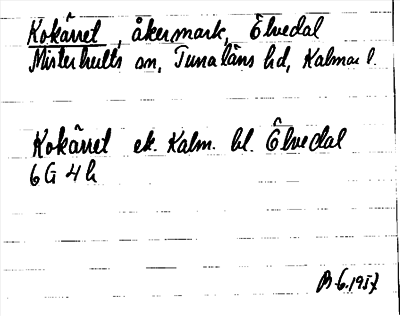 Kokärret, åkermark, Elvedal
Misterhults sn, Tunaläns hd, Kalmar l.
Kokärret ek. Kalm. bl. Elvedal
6 G 4 h
6.1957